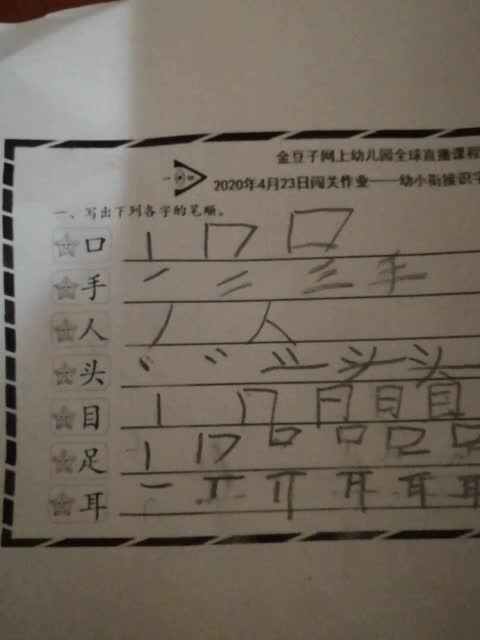 金豆子网上幼儿园全球直播课程
2020年4月23日闯关作业——幼小衔接识字
一、写出下列各字的笔顺。
口 丨 冂 口
手 一 二 三 手
人 丿 人
头
目 丨 冂 月 目 目
足 丨 冂 口 口
耳 一 丅